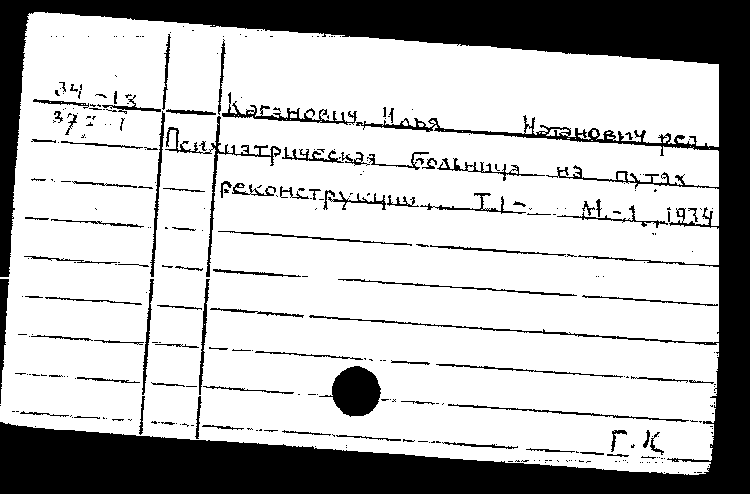 34-18
37
Каганович, Илья Натанович ред.
Психиатрическая больница на путях
реконструкции... Т.1- М.-, 1934
Г.К